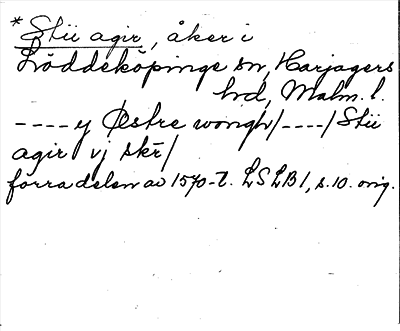 * Stii agir, åker i
Löddeköpinge sn, Harjagers
hd, Malm. l.
----y Østre wongh/----/Stii
agir vj skr/
förra delen av 1570-t. LSLB1, s.10. orig.